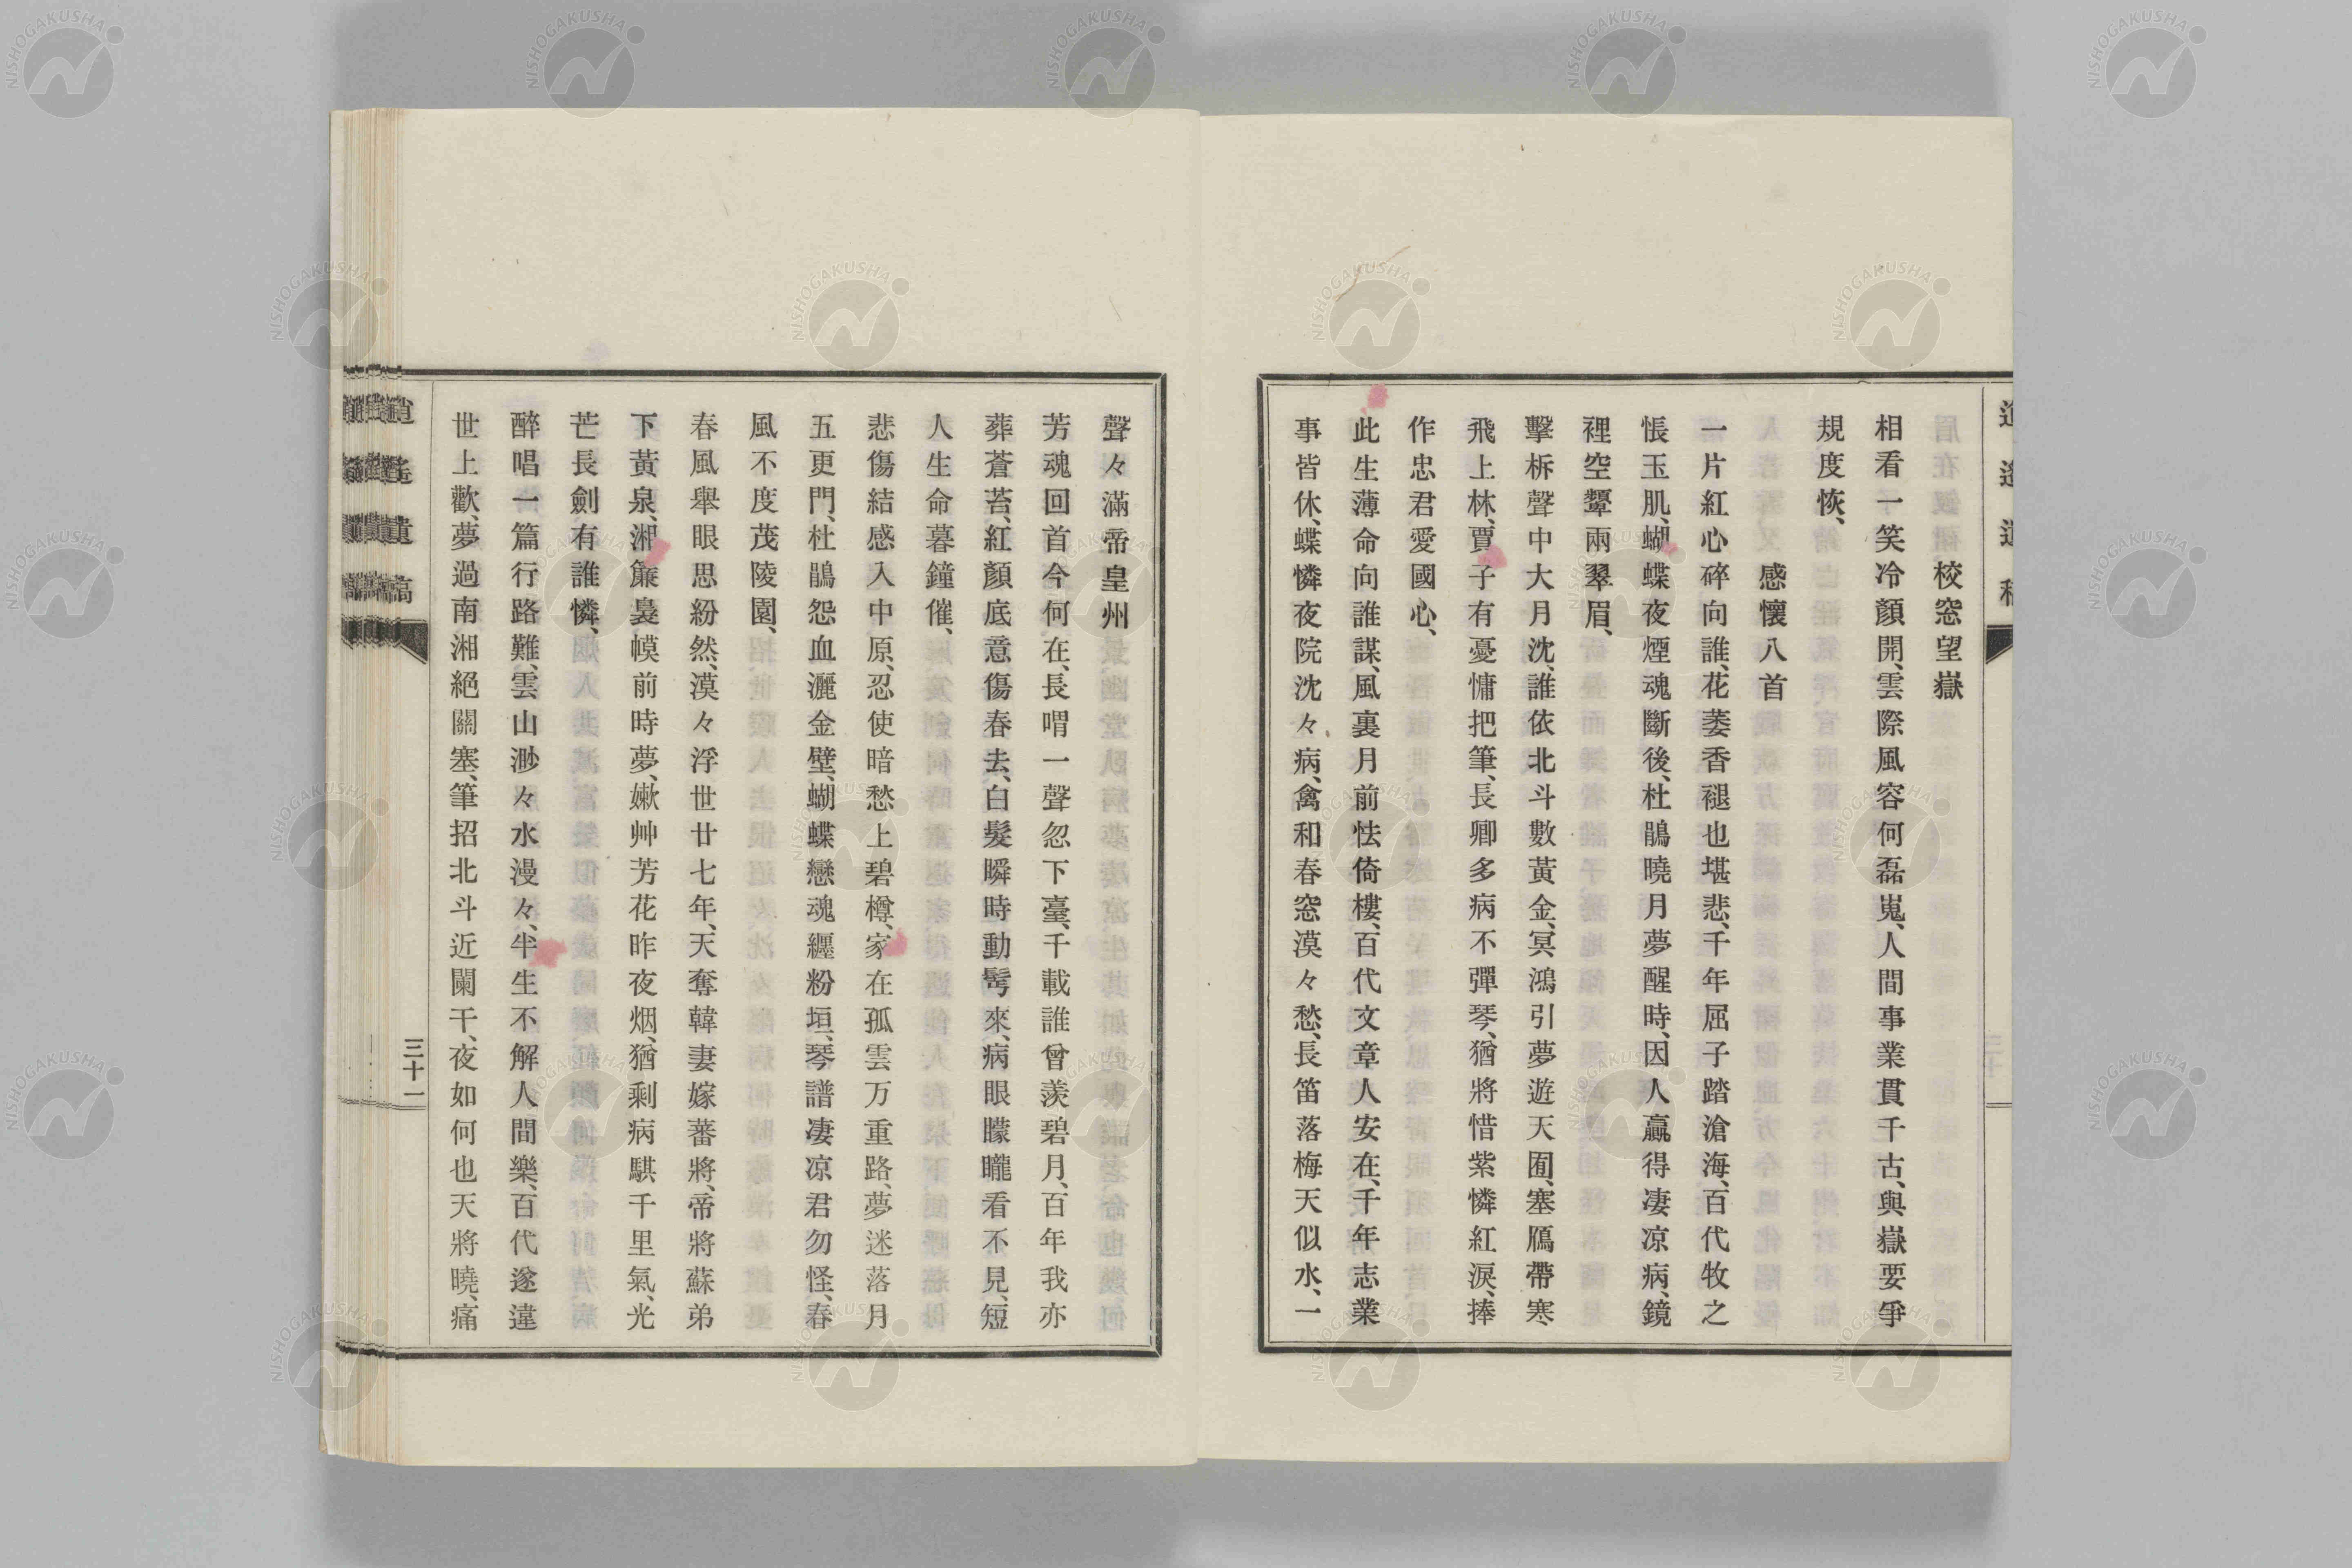 校窓望嶽
相看一笑冷顏開、雲際風容何磊嵬、人間事業貫千古、與嶽要爭
規度恢、
感懷八首
一片紅心碎向誰、花萎香褪也堪悲、千年屈子踏滄海、百代牧之
悵玉肌、蝴蝶夜煙魂斷後、杜鵑曉月夢醒時、因人贏得凄凉病、鏡
裡空顰兩翠眉、
擊柝聲中大月沈、誰依北斗數黃金、冥鴻引夢遊天囿、塞鴈帶寒
飛上林、賈子有憂慵把筆、長卿多病不彈琴、猶將惜紫憐紅淚、捧
作忠君愛國心、
此生薄命向誰謀、風裏月前怯倚樓、百代文章人安在、千年志業
事皆休、蝶憐夜院沈々病、禽和春窓漠々愁、長笛落梅天似水、一
聲々滿帝皇州
芳魂回首今何在、長喟一聲忽下臺、千載誰曾羨碧月、百年我亦
葬蒼苔、紅顏底意傷春去、白髮瞬時動鬢來、病眼朦朧看不見、短
人生命暮鐘催、
悲傷結感入中原、忍使暗愁上碧樽、家在孤雲万重路、夢迷落月
五更門、杜鵑怨血灑金壁、蝴蝶戀魂纒粉垣、琴譜凄凉君勿怪、春
風不度茂陵園、
春風舉眼思紛然、漠々浮世廿七年、天奪韓妻嫁蕃將、帝將蘇弟
下黃泉、湘簾曩幙前時夢、嫩艸芳花昨夜烟、猶剩病騏千里氣、光
芒長劍有誰憐、
醉唱一篇行路難、雲山渺々水漫々、半生不解人間樂、百代遂違
世上歡、夢過南湘絕關塞、筆招北斗近闌干、夜如何也天將曉、痛
逍遙遺稿
三十一
NISHOGAKUSHA